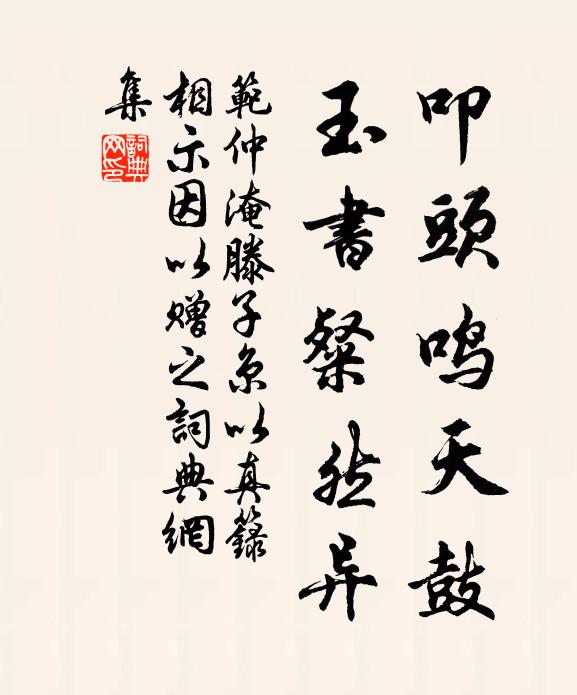 叩頭鳴天鼓
玉書粲然异
範仲淹滕子京以真籙
相示因以贈之詞典網
集
詞典網印